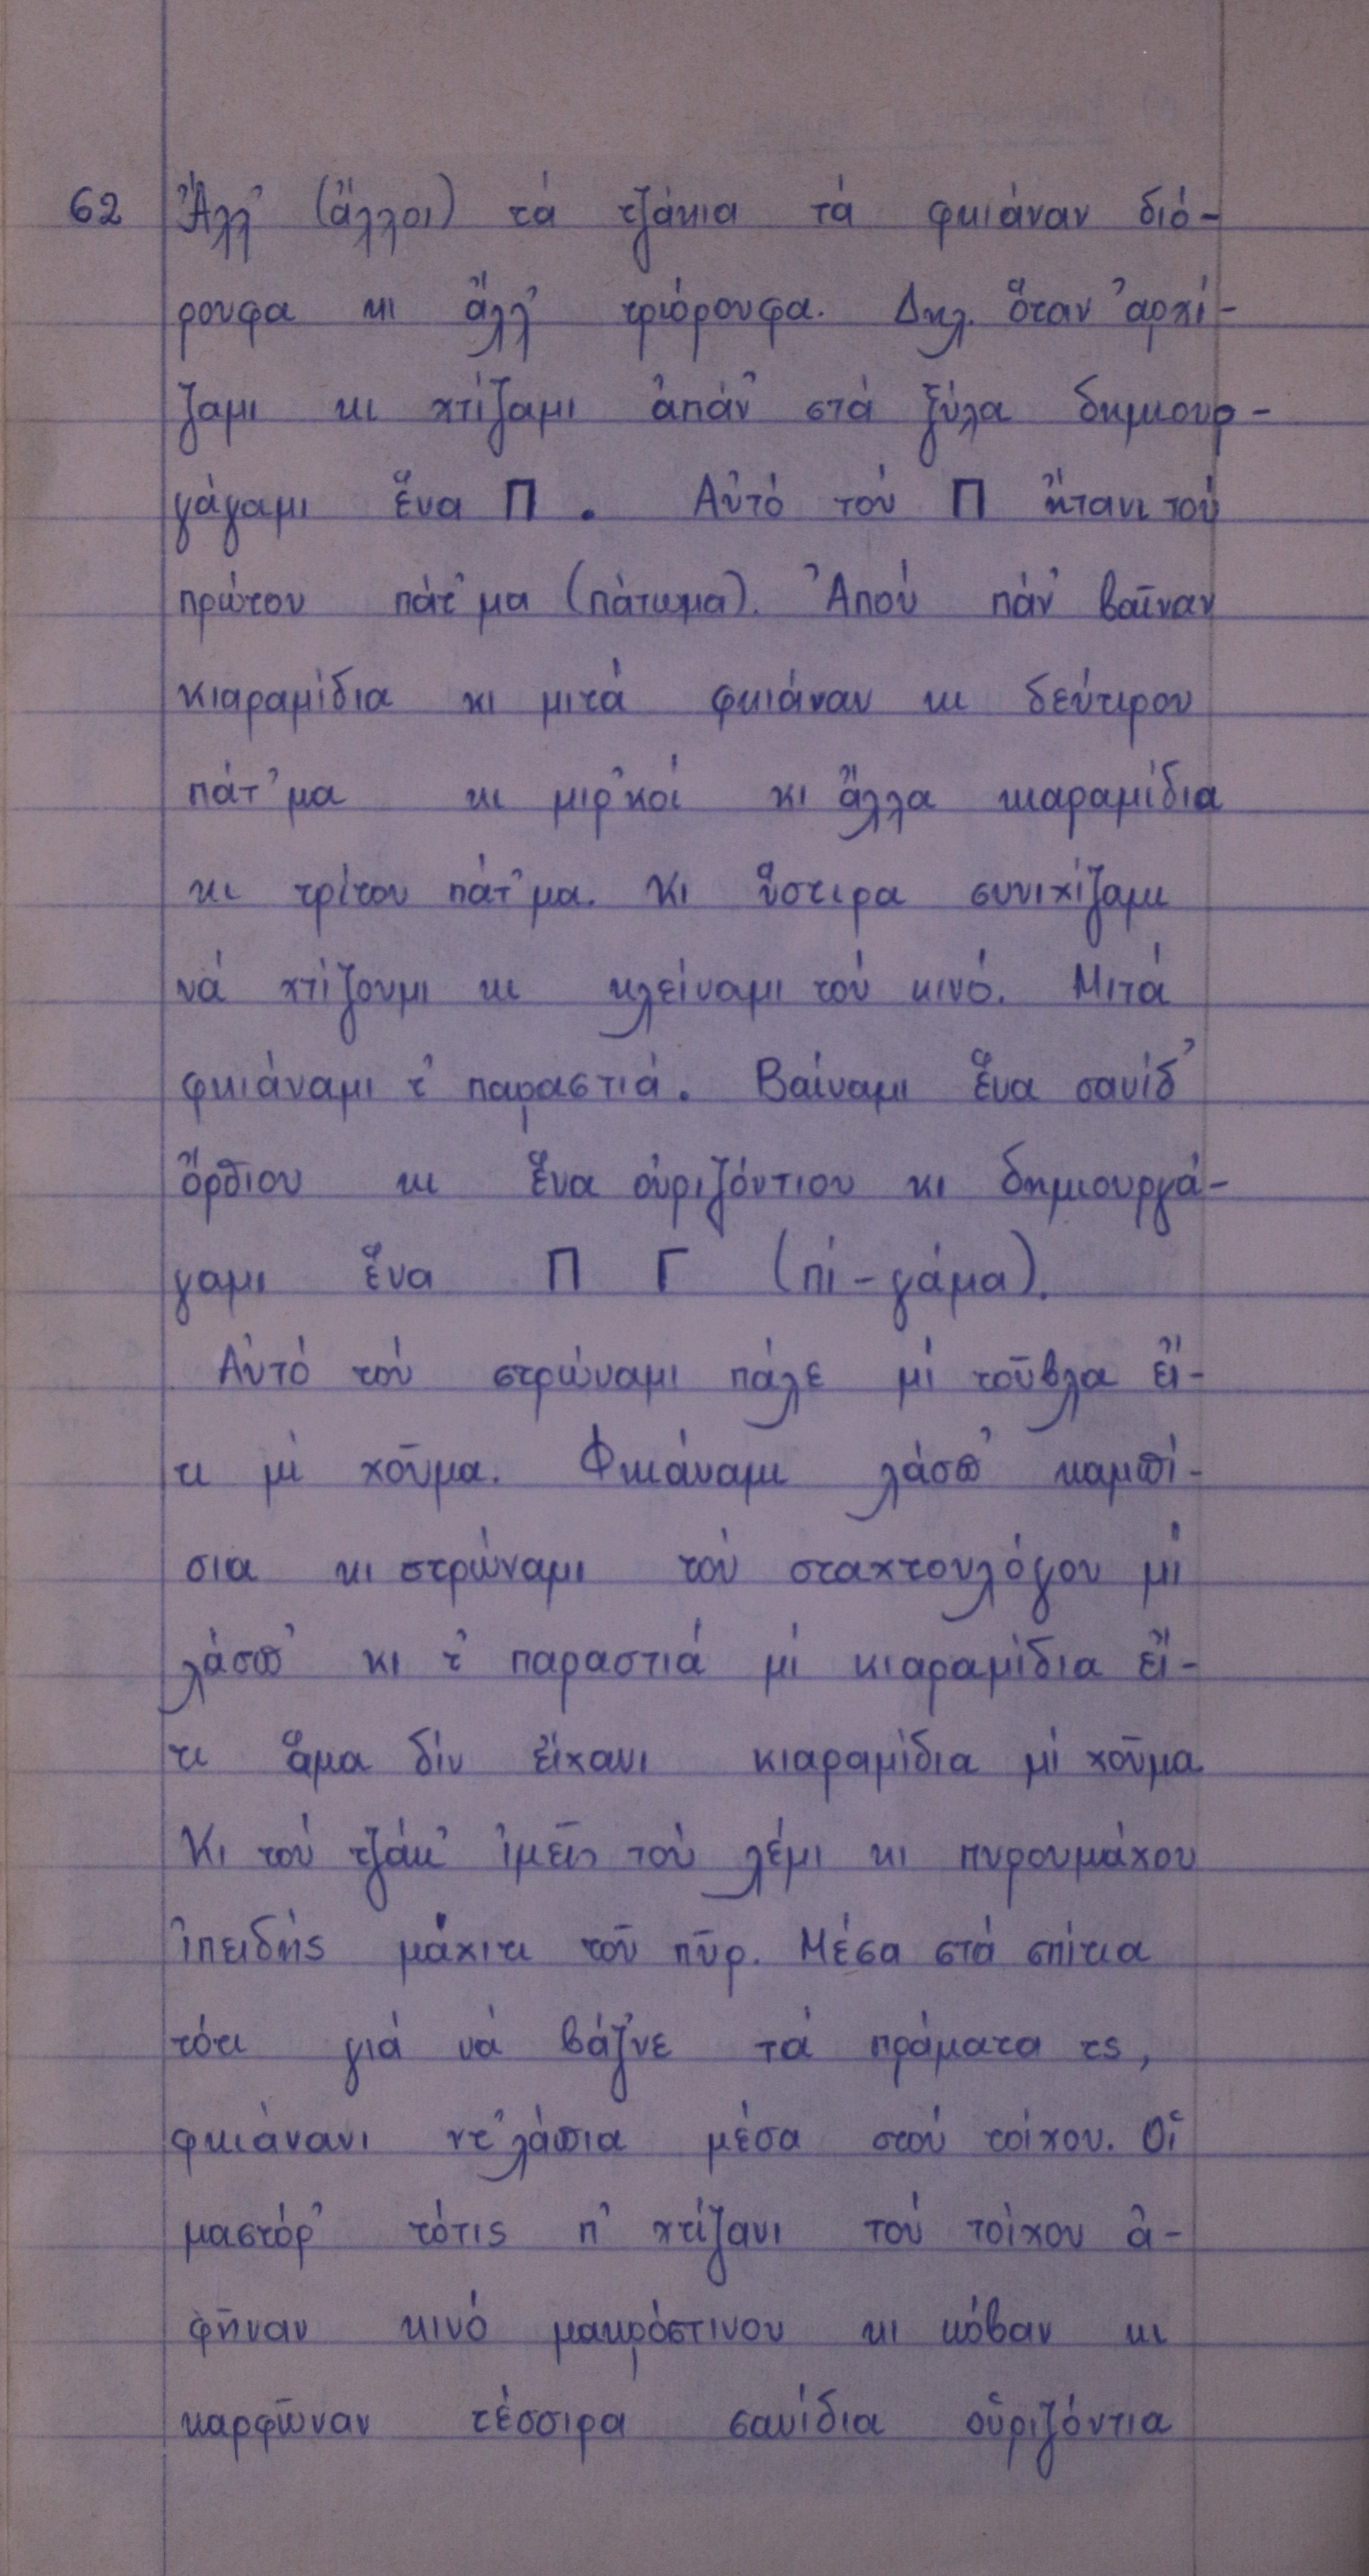 62 Ἄλλ' (ἄλλοι) τά τζάκια τά φκιάναν διό-
ρουφα κι ἄλλ' τριόρουφα. Δηλ. ὅταν ἀρχί-
ζαμι κι χτίζαμι ἀπάν' στά ξύλα δημιουρ-
γάγαμι ἕνα Π. Αὐτό τού Π ἤτανι τού
πρώτου πάτ'μα (πάτωμα). Ἀπού πάν' βαῖναν
κιαραμίδια κι μιτά φκιάναν κι δεύτιρου
πάτ'μα κι μιρ'κοί κι ἄλλα κιαραμίδια
κι τρίτου πάτ'μα. Κι ὕστιρα συνιχίζαμι
νά χτίζουμι κι κλείναμι τού κινό. Μιτά
φκιάναμι τ' παραστιά. Βαίναμι ἕνα σανίδ'
ὄρθιου κι ἕνα οὑριζόντιου κι δημιουργά-
γαμι ἕνα Π Γ (πί-γάμα).
Αὐτό τού στρώναμι πάλε μί τοῦβλα εἴ-
τι μί χοῦμα. Φκιάναμι λάσπ' καμπί-
σια κι στρώναμι τού σταχτουλόγου μί
λάσπ' κι τ' παραστιά μί κιαραμίδια εἴ-
τι ἅμα δίν εἴχανι κιαραμίδια μί χοῦμα
Κι τού τζάκ' ἰμεῖς τού λέμι κι πυρουμάχου
ἰπειδής μάχιτι τοῦ πῦρ. Μέσα στά σπίτια
τότι γιά νά βάζ'νε τά πράματα τς,
φκιάνανι ντ'λάπια μέσα στού τοίχου. Οἱ
μαστόρ' τότις π' χτίζανι τού τοίχου ἀ-
φῆναν κινό μακρόστινου κι κόβαν κι
καρφῶναν τέσσιρα σανίδια οὑριζόντια